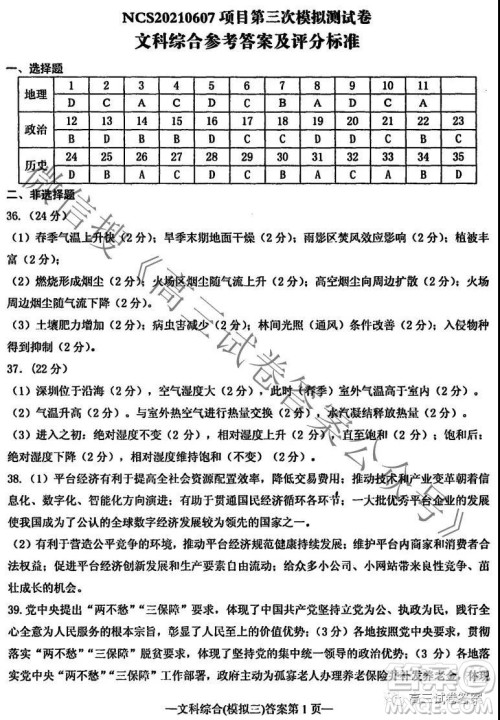 NCS20210607 项目第三次模拟测试卷
文科综合参考答案及评分标准
一、选择题
地理 1 2 3 4 5 6 7 8 9 10 11
D C A C D C B A D C A
政治 12 13 14 15 16 17 18 19 20 21 22 23
历史 24 25 26 27 28 29 30 31 32 33 34 35
二、非选择题
36.（24 分）
（1）春季气温上升快（2 分）；旱季末期地面干燥（2 分）；雨影区焚风效应影响（2 分）；植被丰
富（2 分）；
（2）燃烧形成烟尘（2 分）；火场区烟尘随气流上升（2 分）；高空烟尘向周边扩散（2 分）；烟
尘随气流下降（2 分）。
（3）土壤肥力增加（2 分）；病虫害减少（2 分）；林间光照（通风）条件改善（2 分）；入侵物种
得到抑制（2 分）。
37.（22 分）
（1）深圳位于沿海（2 分），空气湿度大（2 分），此时（春季）室外气温高于室内（2 分）。
（2）气温升高（2 分）。与室外热空气进入受冷有关（2 分），水汽凝结释放热量（2 分）。
（3）进入之初：绝对湿度不变（2 分），相对湿度升高（2 分）；直到水汽达到饱和。饱和后：
绝对湿度下降（2 分），相对湿度维持饱和不变（2 分）。
38.（1）平台经济有利于提高全社会资源配置效率，降低交易费用；推动技术和产业变革朝着信
息化、数字化、智能化方向演进；有助于贯通国民经济循环各环节；一大批优秀平台企业的发展
使我国成为了公认的全球数字经济发展较为领先的国家。
（2）有利于营造公平竞争的环境，推动平台经济规范健康持续发展；维护平台内商家和消费者合
法权益；促进平台经济创新发展和增强国际竞争力；给众多小公司、小网站带来良性竞争、茁
壮成长的机会。
39. 党中央提出“两不愁”“三保障”要求，体现了中国共产党坚持立党为公、执政为民，践行全
心全意为人民服务的根本宗旨和以人民为中心的发展思想；（3 分）各地按照党中央要求，贯彻
落实“两不愁”“三保障”体现了党中央权威和集中统一领导的政治优势和制度优势；（3 分）
“两不愁”“三保障”工作部署，政府为孤寡老人办理保养老险业务补发养老金，体现了政
—文科综合(模拟三)答案第 1 页—
微信搜《高三试卷答案公众号》
高三试卷答案